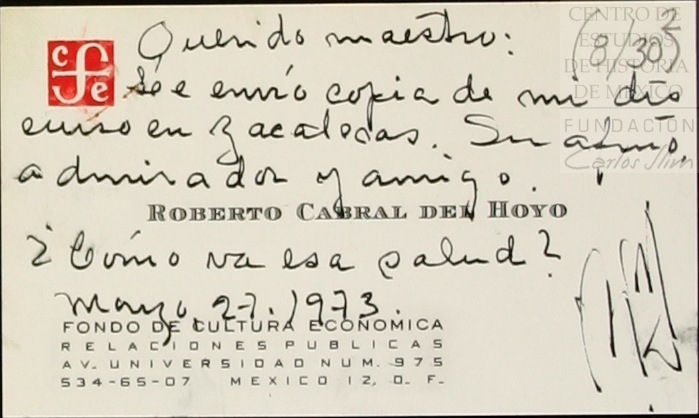 CENTRO DE
ESTUDIOS
DE HISTORIA
DE MÉXICO
FUNDACIÓN
Carlos Slim
(8/30)
2
Querido maestro:
Le envío copia de mi dis
curso en Zacatecas. Su atmo.
admirador y amigo.
ROBERTO CABRAL DEL HOYO
¿Cómo va esa salud?
Marzo, 27, 1973.
FONDO DE CULTURA ECONOMICA
RELACIONES PUBLICAS
AV. UNIVERSIDAD NUM. 975
534-65-07 MEXICO 12, D. F.